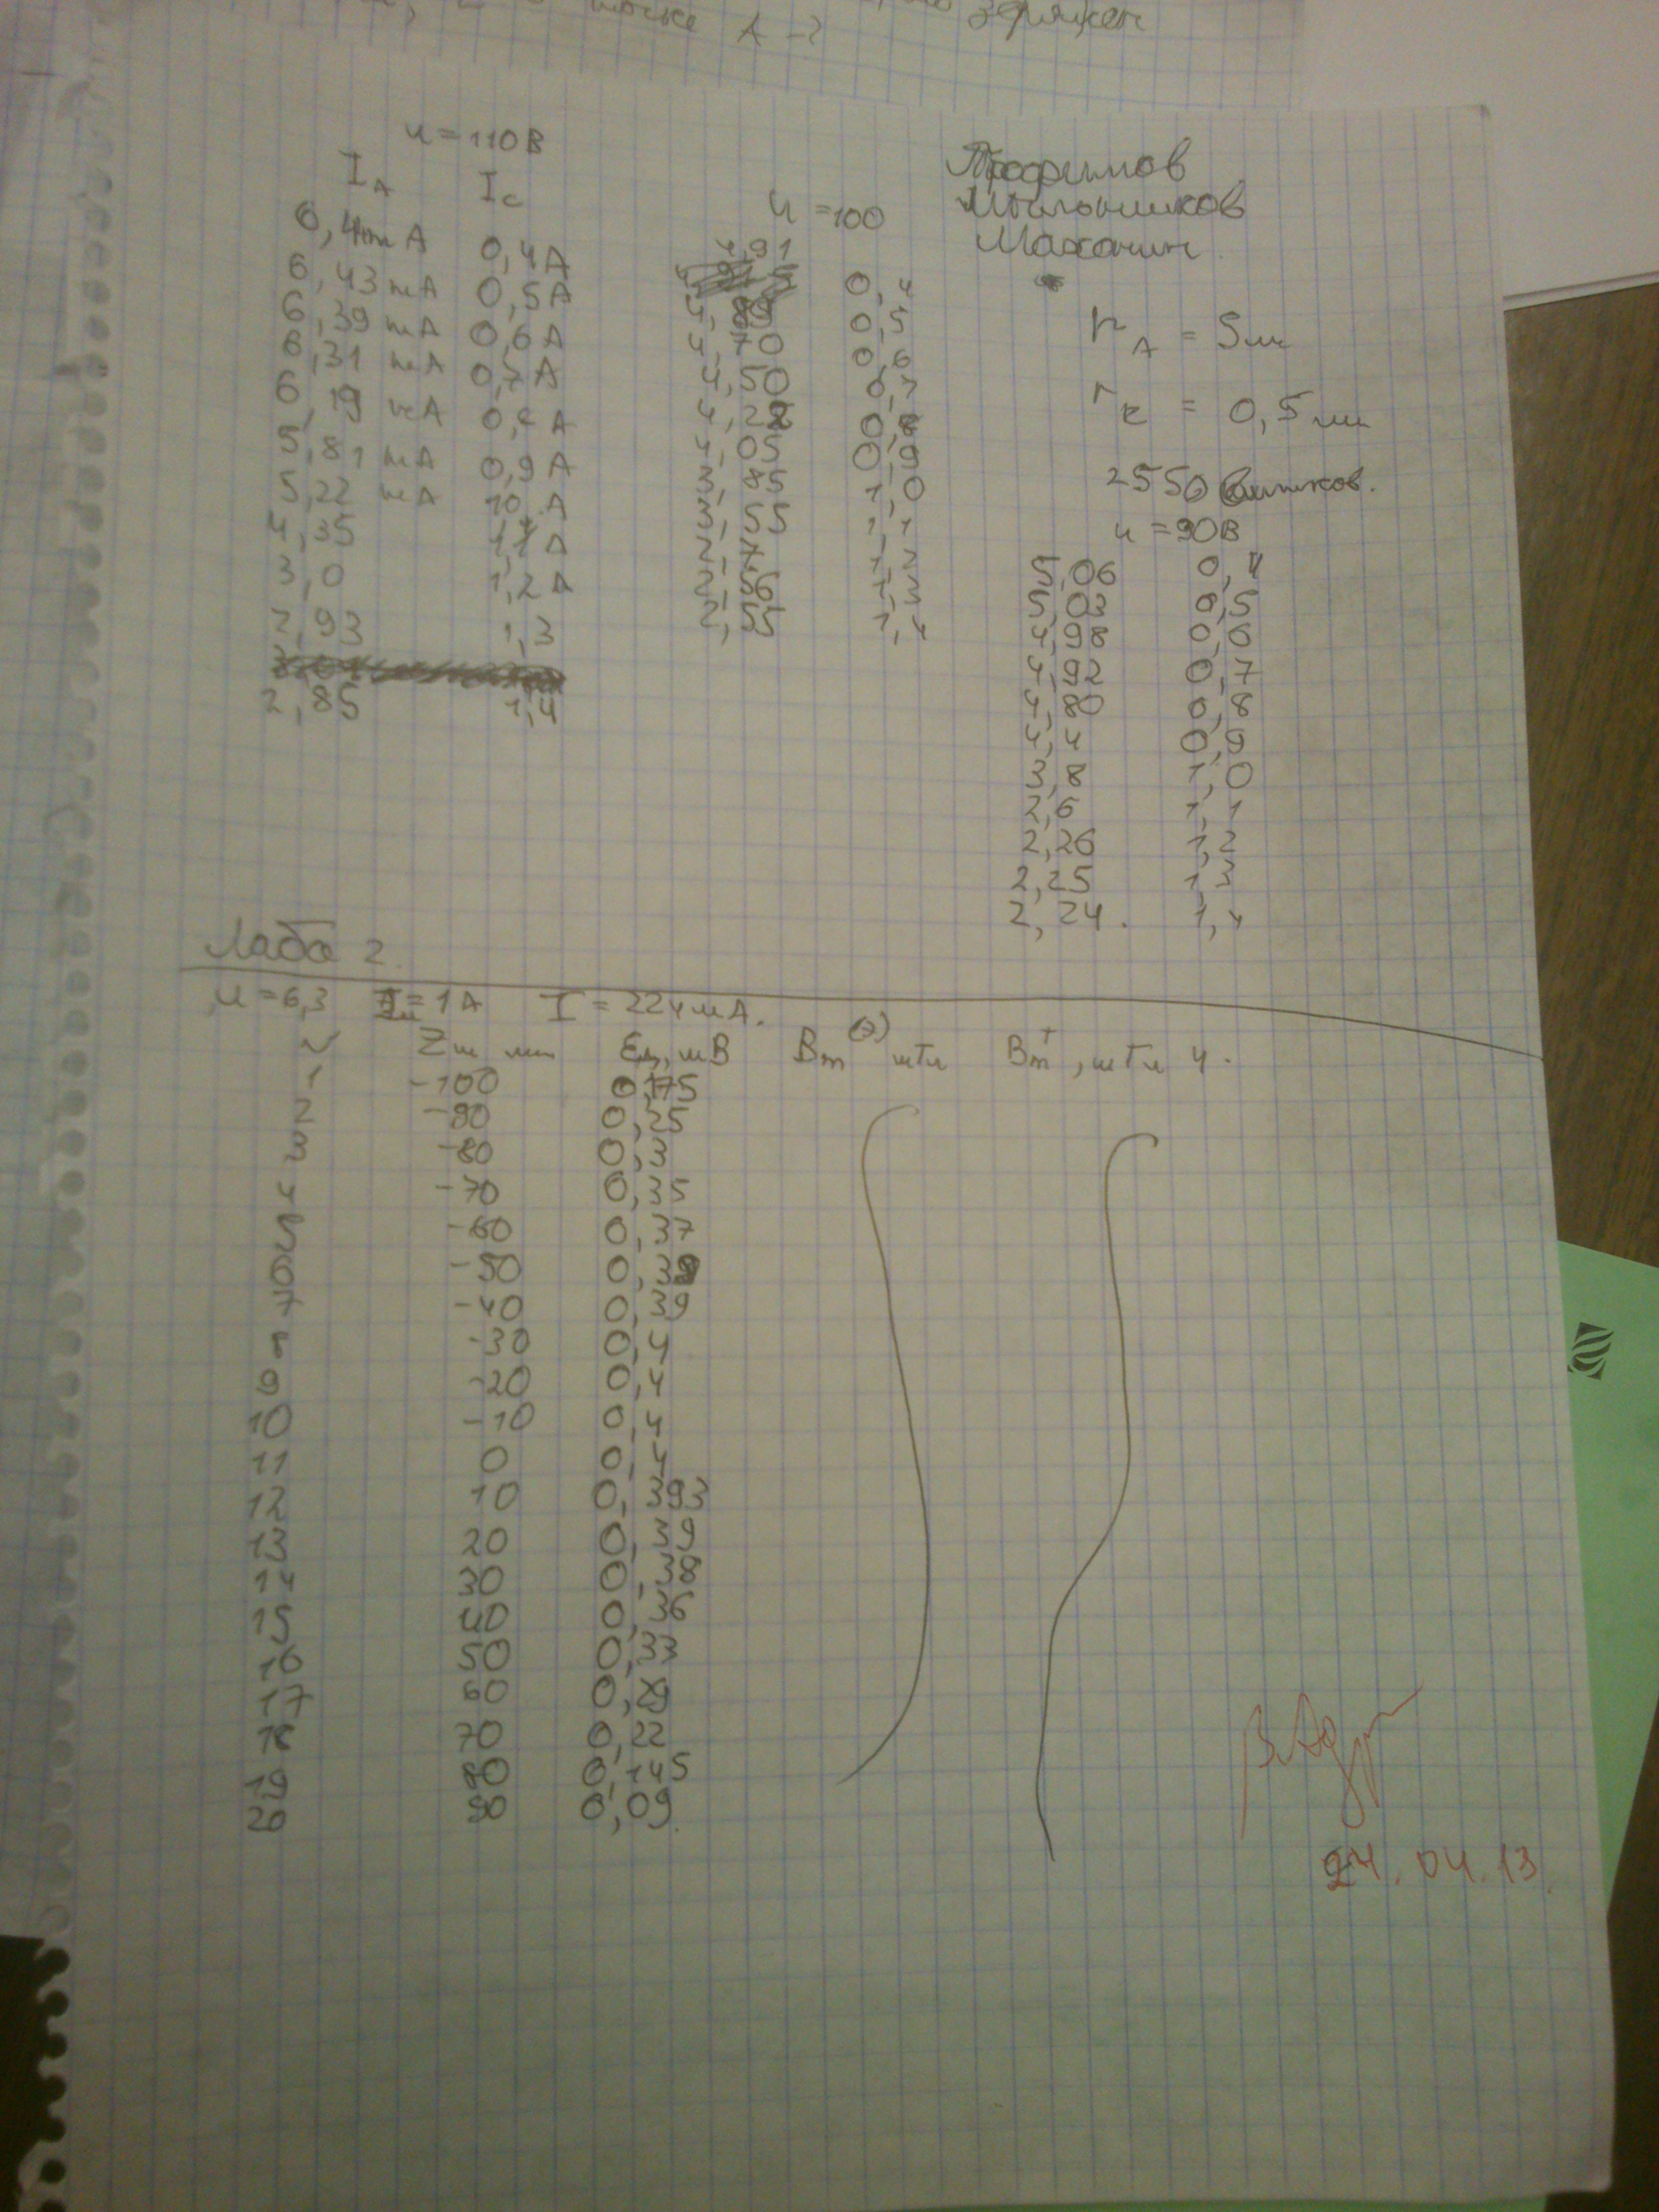 точке А -? заряжен
u = 110 В
I_A I_c
6,4 mA 0,4 A
6,43 mA 0,5 A
6,39 mA 0,6 A
6,31 mA 0,7 A
6,19 mA 0,8 A
5,81 mA 0,9 A
5,22 mA 10 A
4,35 1,1 A
3,0 1,2 A
2,93 1,3
2,85 1,4
u = 100
4,91 0,4
4,89 0,5
4,70 0,6
4,50 0,7
4,28 0,8
4,05 0,9
3,85 1,0
3,55 1,1
2,7 1,2
2,56 1,3
2,55 1,4
Трофимов
Мыльников
Махонин
r_A = 5 мм
r_к = 0,5 мм
2550 витков.
u = 90 В
5,06 0,4
5,03 0,5
4,98 0,6
4,92 0,7
4,80 0,8
4,4 0,9
3,8 1,0
2,6 1,1
2,26 1,2
2,25 1,3
2,24. 1,4
Лаба 2
u = 6,3 = 1 А I = 224 мА.
мм мВ Bm мТл Bm , мТл
1 -100 0,175
2 -90 0,25
3 -80 0,3
4 -70 0,35
5 -60 0,37
6 -50 0,38
7 -40 0,39
8 -30 0,4
9 -20 0,4
10 -10 0,4
11 0 0,4
12 10 0,393
13 20 0,39
14 30 0,38
15 40 0,36
16 50 0,33
17 60 0,29
18 70 0,22
19 80 0,145
20 90 0,09.
24.04.13.